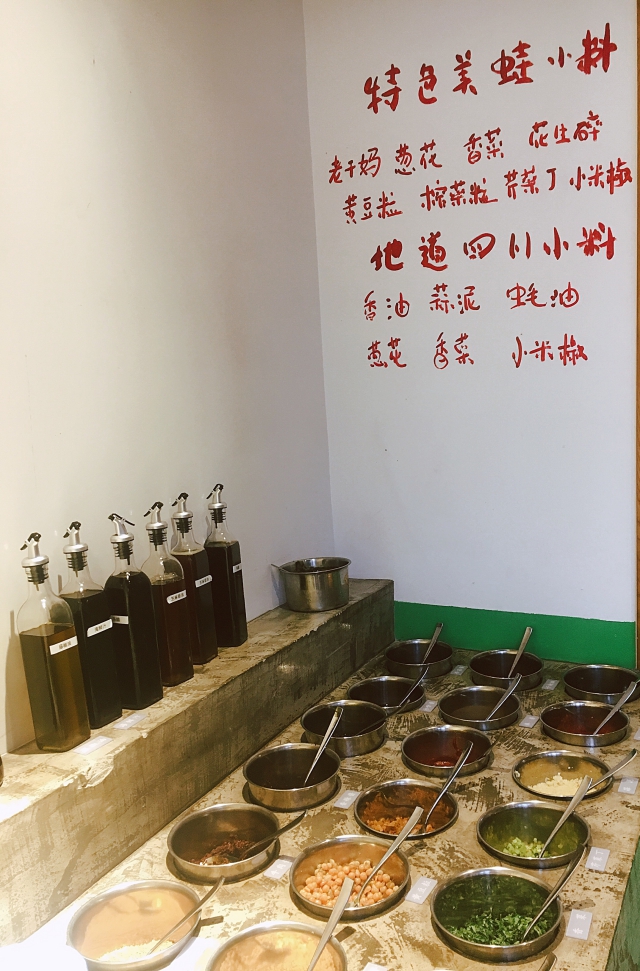 特色美蛙小料
老干妈 葱花 香菜 花生碎
黄豆粒 榨菜粒 芹菜丁 小米椒
地道四川小料
香油 蒜泥 蚝油
葱花 香菜 小米椒